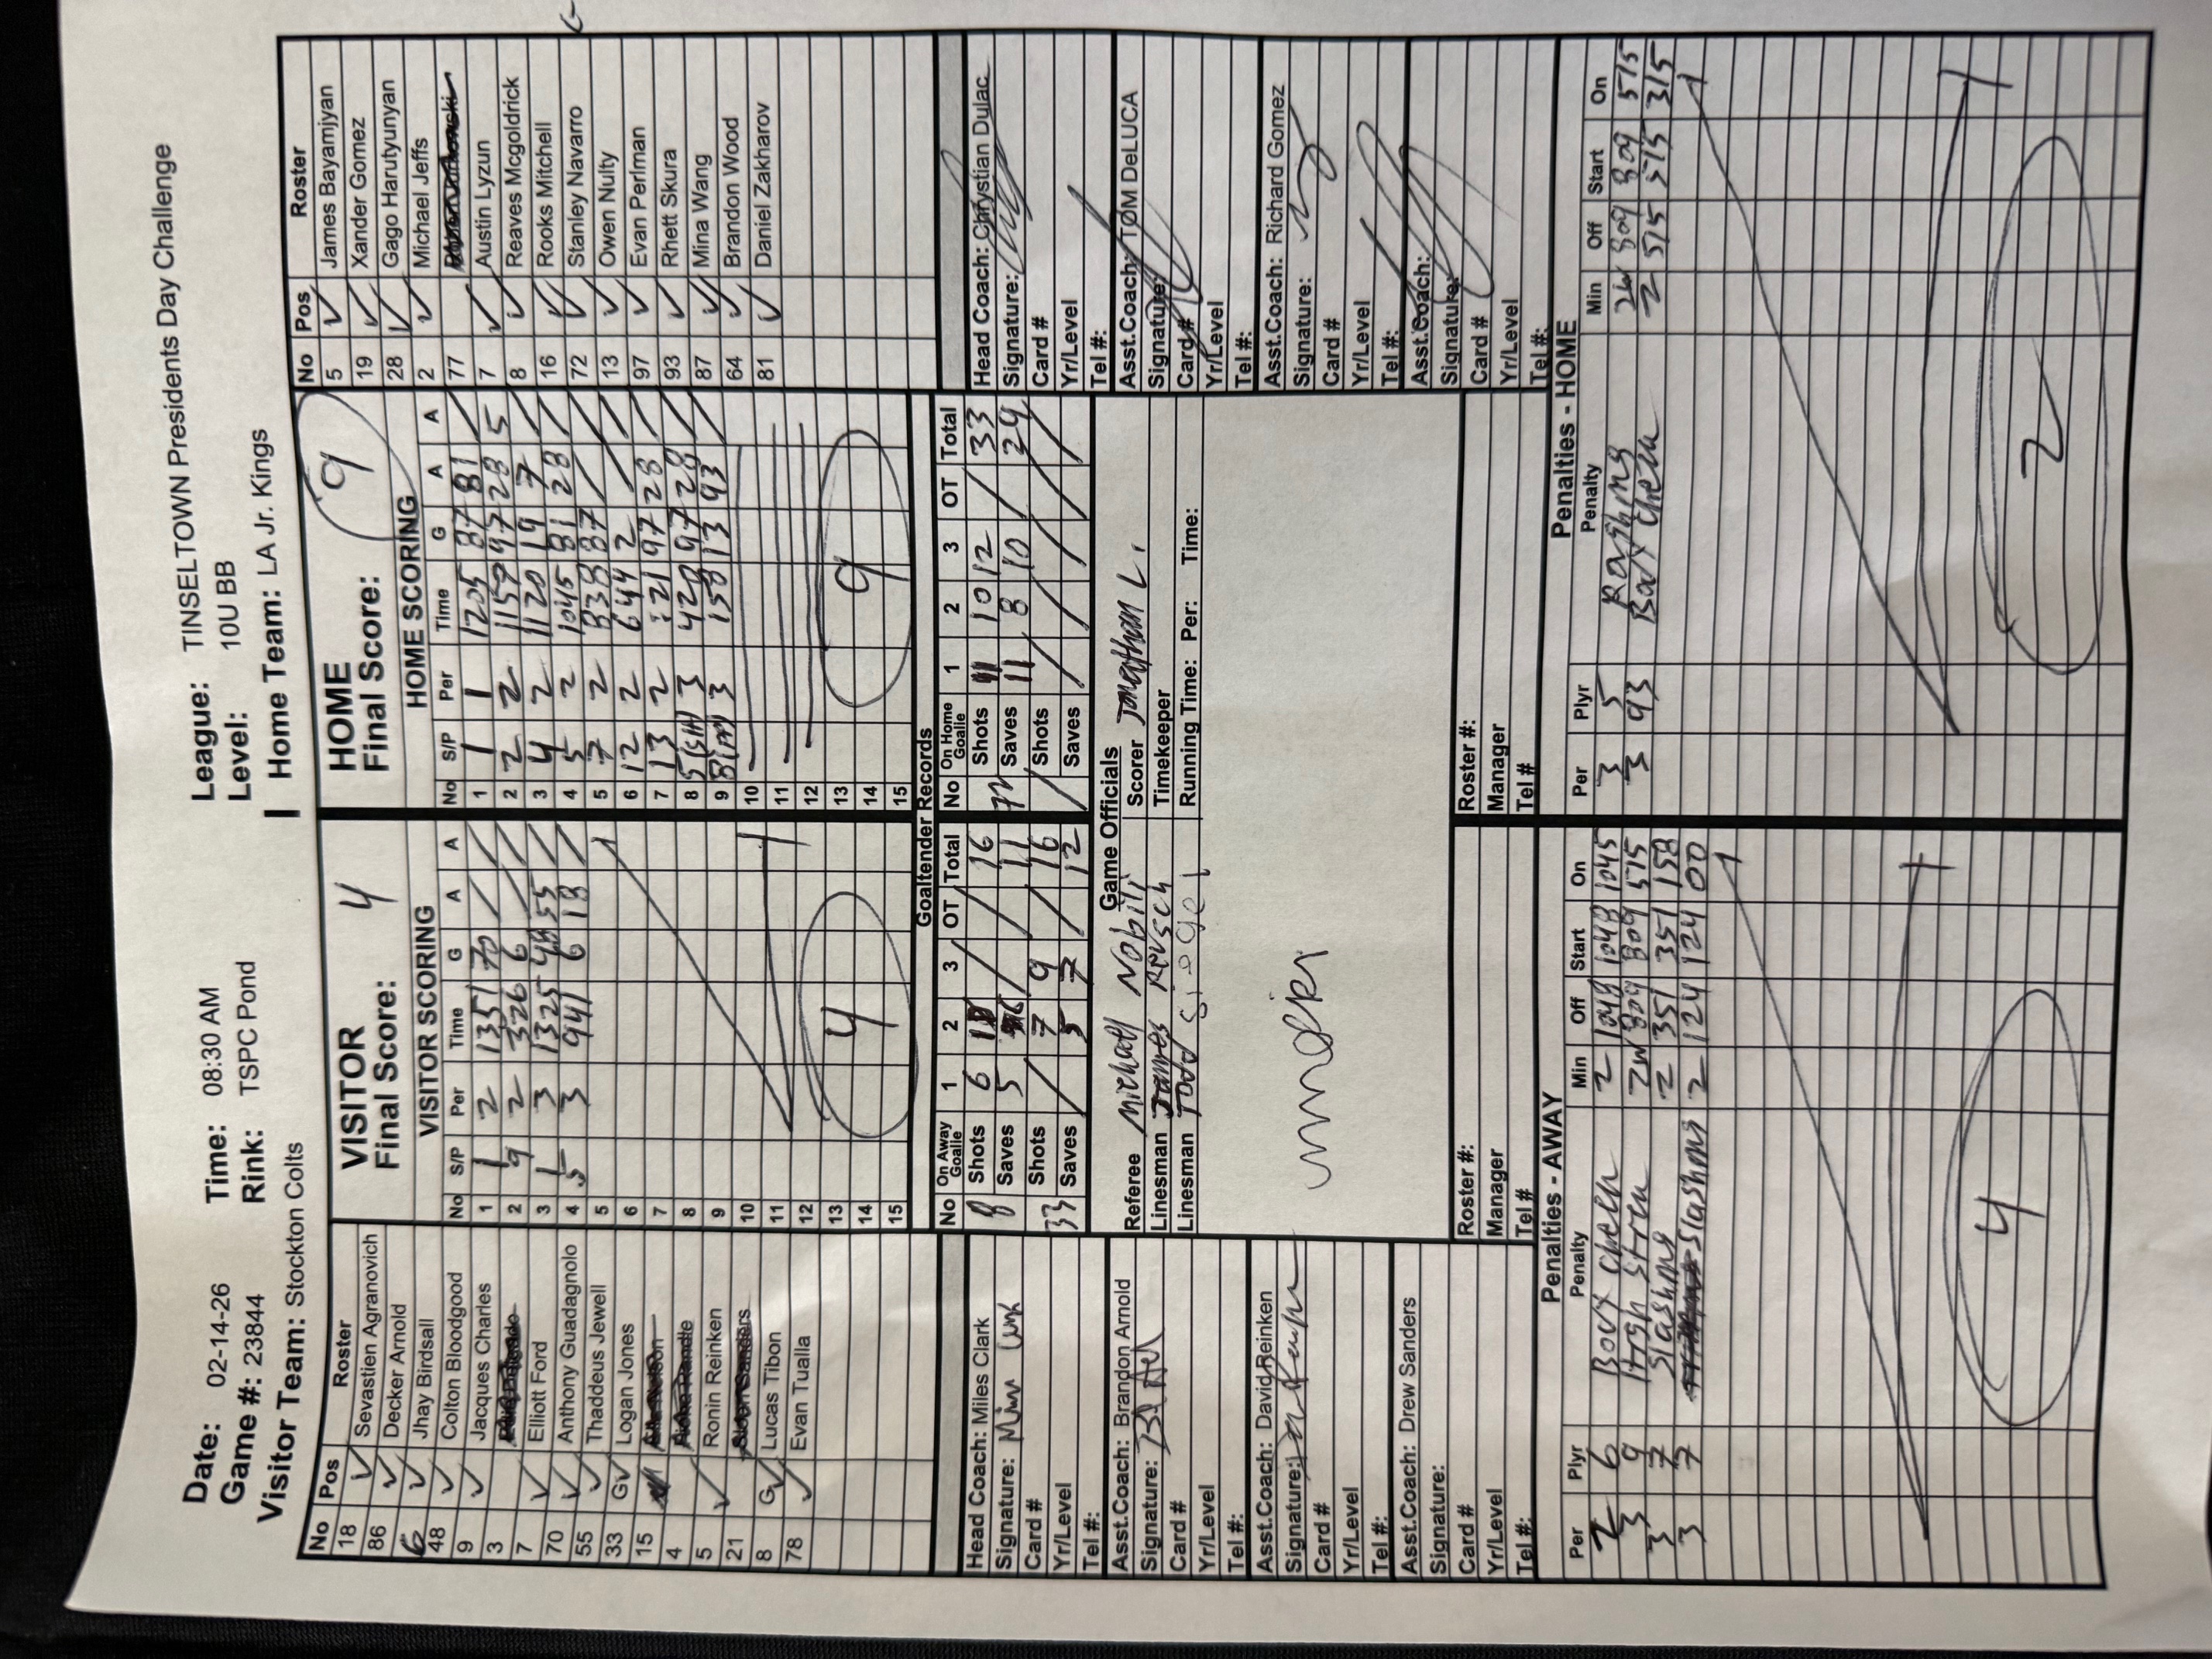 Date: 02-14-26 Time: 08:30 AM League: TINSELTOWN Presidents Day Challenge
Game #: 23844 Rink: TSPC Pond Level: 10U BB
Visitor Team: Stockton Colts Home Team: LA Jr. Kings
No Pos Roster
18 ✓ Sevastien Agranovich
86 ✓ Decker Arnold
6 ✓ Jhay Birdsall
48 ✓ Colton Bloodgood
9 ✓ Jacques Charles
3
7 ✓ Elliott Ford
70 ✓ Anthony Guadagnolo
55 ✓ Thaddeus Jewell
33 G✓ Logan Jones
15
4
5 ✓ Ronin Reinken
21
8 G✓ Lucas Tibon
78 ✓ Evan Tualla
VISITOR
Final Score: 4
VISITOR SCORING
No S/P Per Time G A A
1 1 2 1351 70 / /
2 9 2 326 6 / /
3 1 3 1325 48 55 /
4 5 3 941 6 18 /
5
6
7
8
9
10
11
12
13 4
14
15
HOME
Final Score: 9
HOME SCORING
No S/P Per Time G A A
1 1 1 1205 87 81 /
2 2 2 1159 97 28 5
3 4 2 1120 19 7 /
4 5 2 1045 81 28 /
5 7 2 838 87 / /
6 12 2 644 2 / /
7 13 2 :21 97 28 /
8 5(SH) 3 428 97 28 /
9 8(PP) 3 158 13 93 /
10
11
12
13 9
14
15
No Pos Roster
5 ✓ James Bayamjyan
19 ✓ Xander Gomez
28 ✓ Gago Harutyunyan
2 ✓ Michael Jeffs
77
7 ✓ Austin Lyzun
8 ✓ Reaves Mcgoldrick
16 ✓ Rooks Mitchell
72 ✓ Stanley Navarro G
13 ✓ Owen Nulty
97 ✓ Evan Perlman
93 ✓ Rhett Skura
87 ✓ Mina Wang
64 ✓ Brandon Wood
81 ✓ Daniel Zakharov
Goaltender Records
No On Away Goalie 1 2 3 OT Total
8 Shots 6 / / 16
Saves 5 / / 11
33 Shots / 7 9 / 16
Saves / 5 7 / 12
No On Home Goalie 1 2 3 OT Total
72 Shots 11 10 12 / 33
Saves 11 8 10 / 29
Shots / / / / /
Saves / / / / /
Head Coach: Miles Clark
Signature:
Card #
Yr/Level
Tel #:
Asst.Coach: Brandon Arnold
Signature:
Card #
Yr/Level
Tel #:
Asst.Coach: David Reinken
Signature:
Card #
Yr/Level
Tel #:
Asst.Coach: Drew Sanders
Signature:
Card #
Yr/Level
Tel #:
Game Officials
Referee Michael Nobili Scorer Jonathan L.
Linesman James Timekeeper
Linesman Todd Siegel Running Time: Per: Time:
Head Coach: Chrystian Dulac
Signature:
Card #
Yr/Level
Tel #:
Asst.Coach: TOM DeLUCA
Signature:
Card #
Yr/Level
Tel #:
Asst.Coach: Richard Gomez
Signature:
Card #
Yr/Level
Tel #:
Asst.Coach:
Signature:
Card #
Yr/Level
Tel #:
Roster #: Roster #:
Manager Manager
Tel # Tel #
Penalties - AWAY
Per Plyr Penalty Min Off Start On
2 6 Body Check 2 1048 1048 1045
3 9 High Stick 809 809 515
3 7 Slashing 2 351 351 158
3 7 Slashing 2 124 124 00
4
Penalties - HOME
Per Plyr Penalty Min Off Start On
3 5 Roughing 809 809 515
3 93 Body Check 2 515 515 315
2